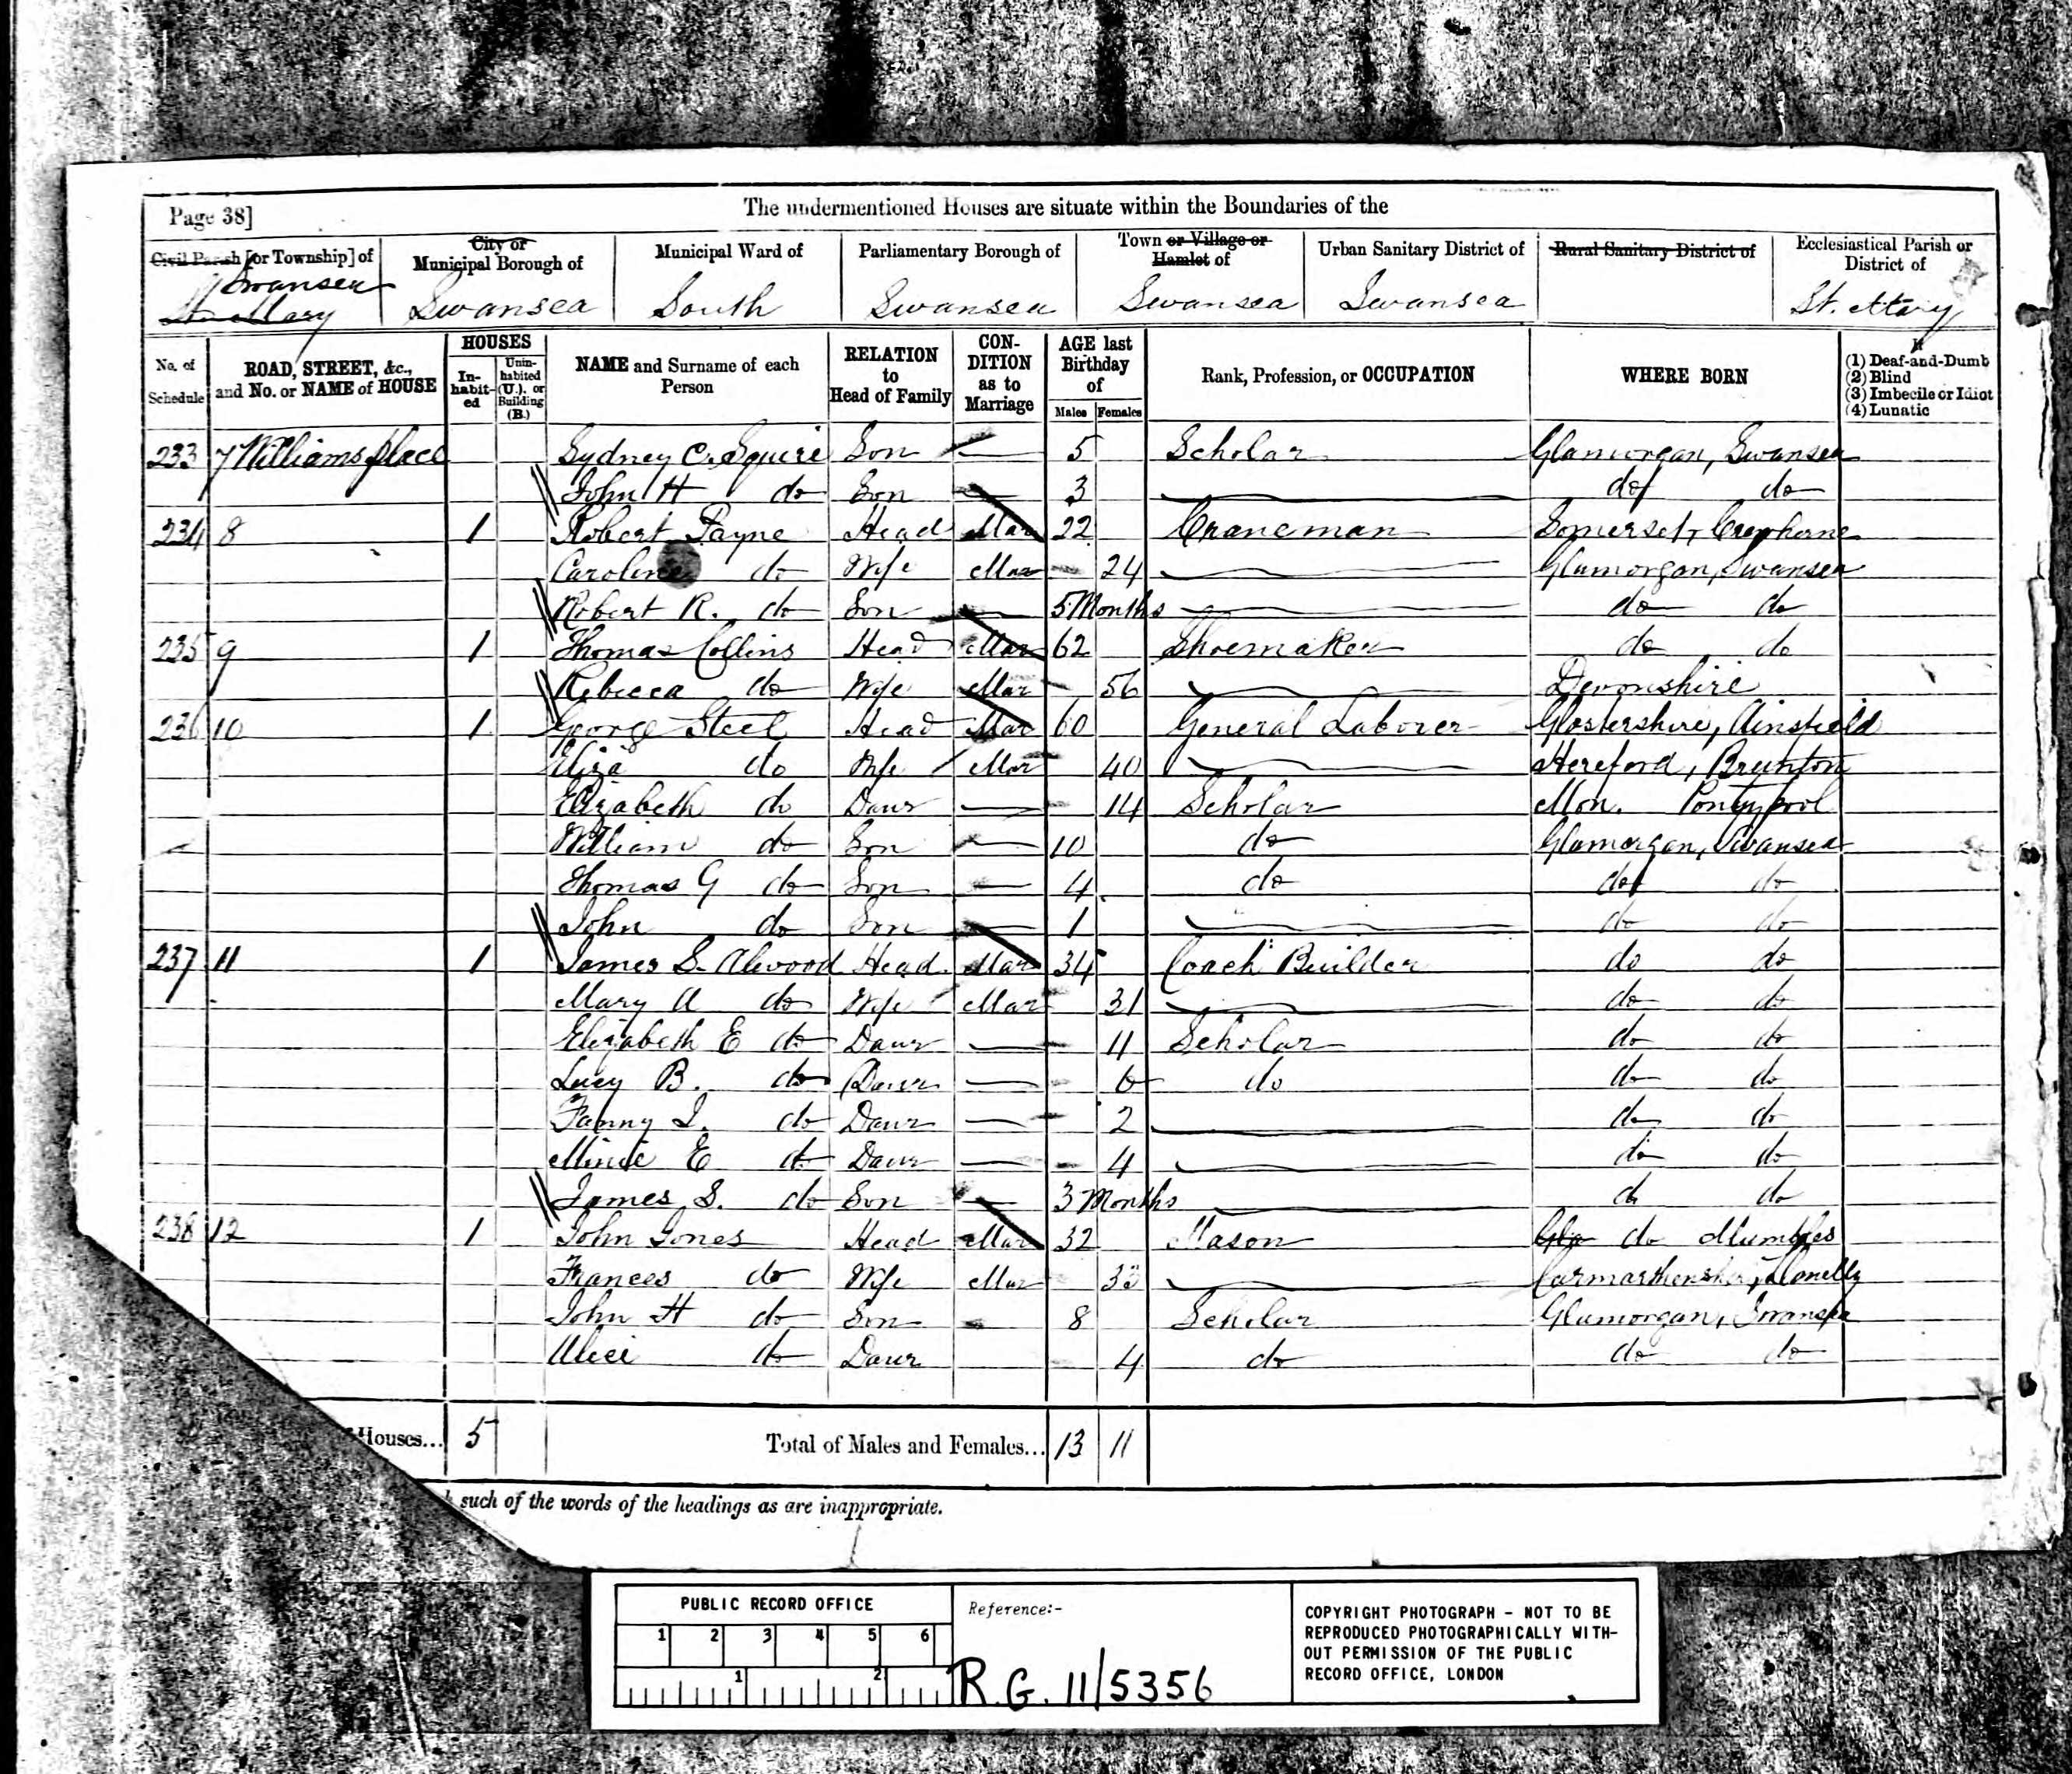 Page 38]
The undermentioned Houses are situate within the Boundaries of the
Civil Parish [or Township] of
City or Municipal Borough of
Municipal Ward of
Parliamentary Borough of
Town or Village or Hamlet of
Urban Sanitary District of
Rural Sanitary District of
Ecclesiastical Parish or District of
Swansea
St. Mary Swansea South Swansea Swansea Swansea St. Mary
No. of Schedule
ROAD, STREET, &c., and No. or NAME of HOUSE
HOUSES
In-habit-ed
Unin-habited (U.), or Building (B.)
NAME and Surname of each Person
RELATION to Head of Family
CON-DITION as to Marriage
AGE last Birthday of
Males Females
Rank, Profession, or OCCUPATION
WHERE BORN
If
(1) Deaf-and-Dumb
(2) Blind
(3) Imbecile or Idiot
(4) Lunatic
233 7 Williams place Sydney C. Squire Son — 5 Scholar Glamorgan, Swansea
John H do Son — 3 — do do
234 8 1 Robert Payne Head Mar 22 Craneman Somerset, Crewkerne
Caroline do Wife Mar 24 — Glamorgan, Swansea
Robert R. do Son — 5 Months — do do
235 9 1 Thomas Collins Head Mar 62 Shoemaker do do
Rebecca do Wife Mar 56 — Devonshire
236 10 1 George Steel Head Mar 60 General Laborer Glostershire, Ainsfield
Eliza do Wife Mar 40 — Hereford, Brunton
Elizabeth do Daur — 14 Scholar Mon. Pontypool
William do Son — 10 do Glamorgan, Swansea
Thomas G do Son — 4 do do do
John do Son — 1 — do do
237 11 1 James S. Alwood Head Mar 34 Coach Builder do do
Mary A do Wife Mar 31 — do do
Elizabeth E do Daur — 11 Scholar do do
Lucy B. do Daur — 6 do do do
Fanny I. do Daur — 2 — do do
Minie E do Daur — 4 — do do
James S. do Son — 3 Months — do do
238 12 1 John Jones Head Mar 32 Mason Gla do Mumbles
Frances do Wife Mar — Carmarthenshire, Llanelly
John H do Son 8 Scholar Glamorgan, Swansea
Alice do Daur 4 do do do
Houses... 5 Total of Males and Females... 13 11
such of the words of the headings as are inappropriate.
PUBLIC RECORD OFFICE
1 2 3 4 5 6
1 2
Reference:-
R.G. 11/5356
COPYRIGHT PHOTOGRAPH - NOT TO BE
REPRODUCED PHOTOGRAPHICALLY WITH-
OUT PERMISSION OF THE PUBLIC
RECORD OFFICE, LONDON